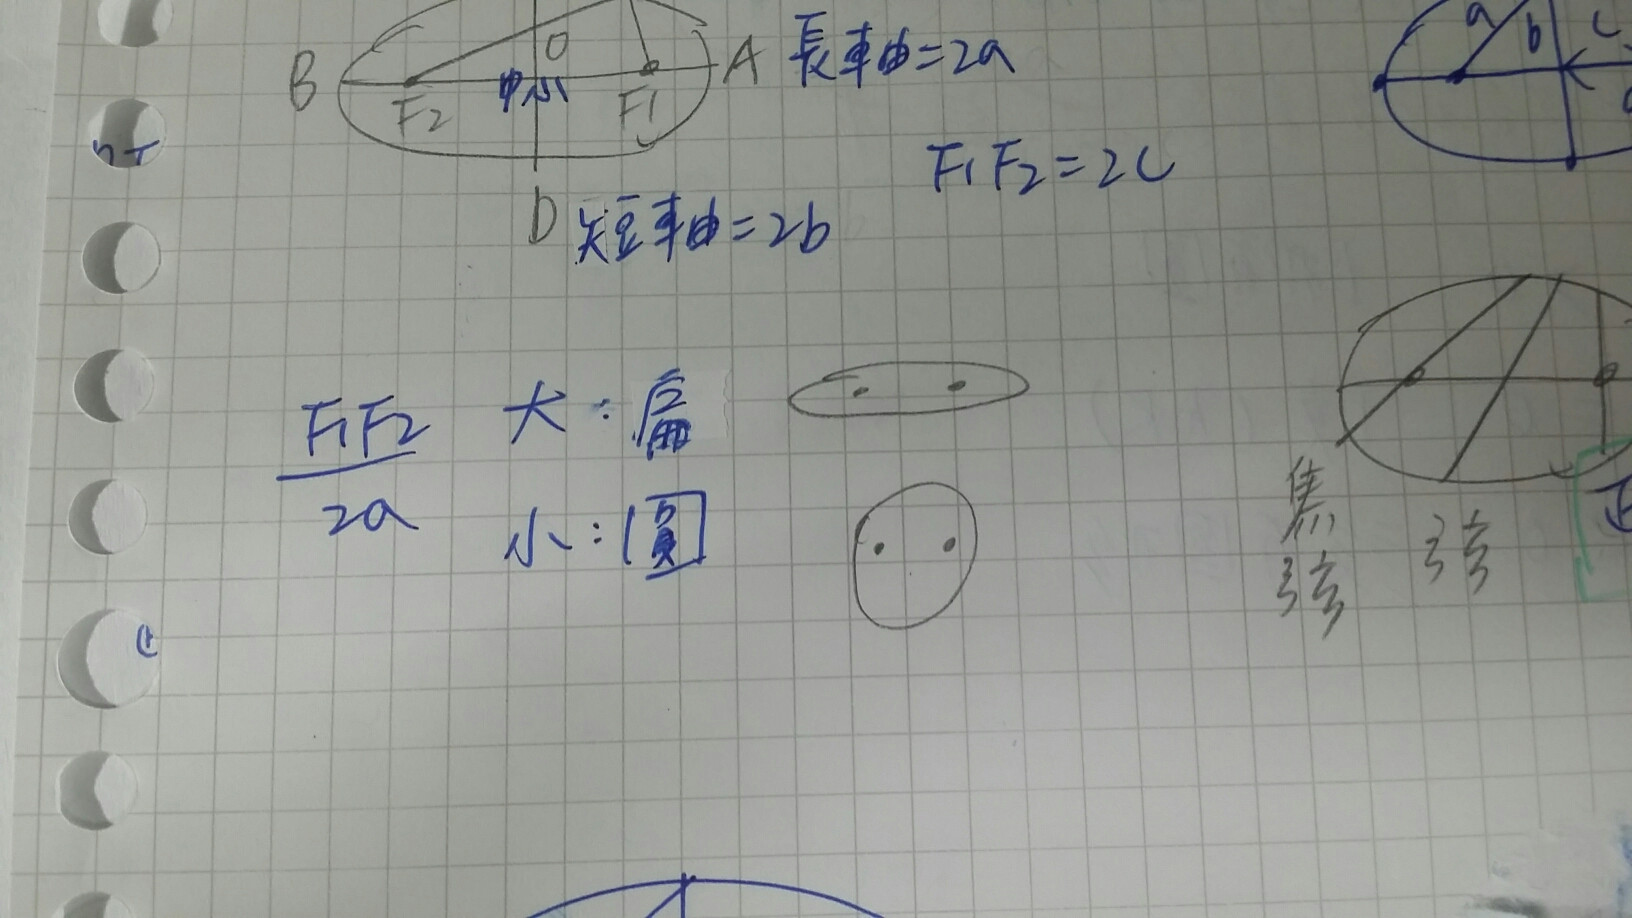 a b c
O
B A 長軸=2a
F2 中心 F1
F1F2=2c
D 短軸=2b
F1F2 大:扁
2a 小:圓
焦弦 弦